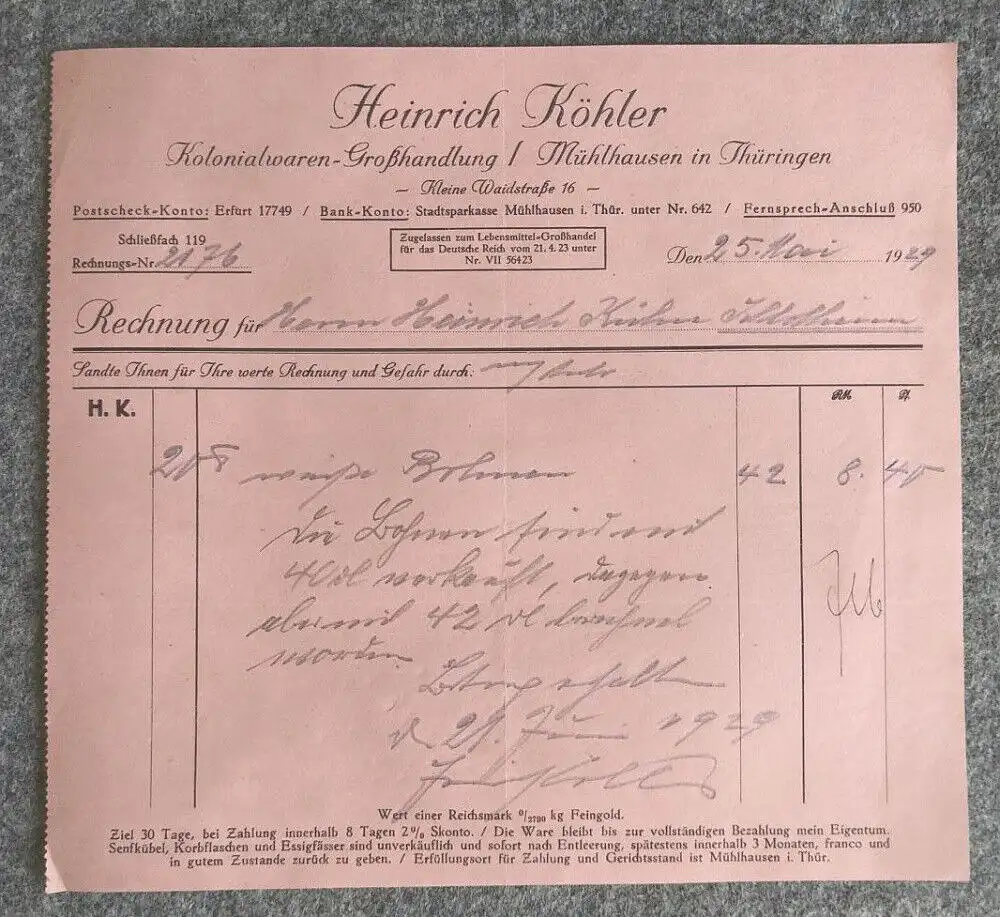 Heinrich Köhler
Kolonialwaren-Großhandlung / Mühlhausen in Thüringen
— Kleine Waidstraße 16 —
Postscheck-Konto: Erfurt 17749 / Bank-Konto: Stadtsparkasse Mühlhausen i. Thür. unter Nr. 642 / Fernsprech-Anschluß 950
Schließfach 119
Rechnungs-Nr. 2176
Zugelassen zum Lebensmittel-Großhandel
für das Deutsche Reich vom 21. 4. 23 unter
Nr. VII 56423
Den 25. Mai 1929
Rechnung für Herrn Heinrich
Sandte Ihnen für Ihre werte Rechnung und Gefahr durch:
H. K.
RM Pf.
20 weiße Bohnen 42 8. 40
Die Bohnen sind mit
40 verkauft, dagegen
aber mit 42 berechnet
worden.
Betrag erhalten
d. 21. Juni 1929
Wert einer Reichsmark 0/2790 kg Feingold.
Ziel 30 Tage, bei Zahlung innerhalb 8 Tagen 2% Skonto. / Die Ware bleibt bis zur vollständigen Bezahlung mein Eigentum.
Senfkübel, Korbflaschen und Essigfässer sind unverkäuflich und sofort nach Entleerung, spätestens innerhalb 3 Monaten, franco und
in gutem Zustande zurück zu geben. / Erfüllungsort für Zahlung und Gerichtsstand ist Mühlhausen i. Thür.